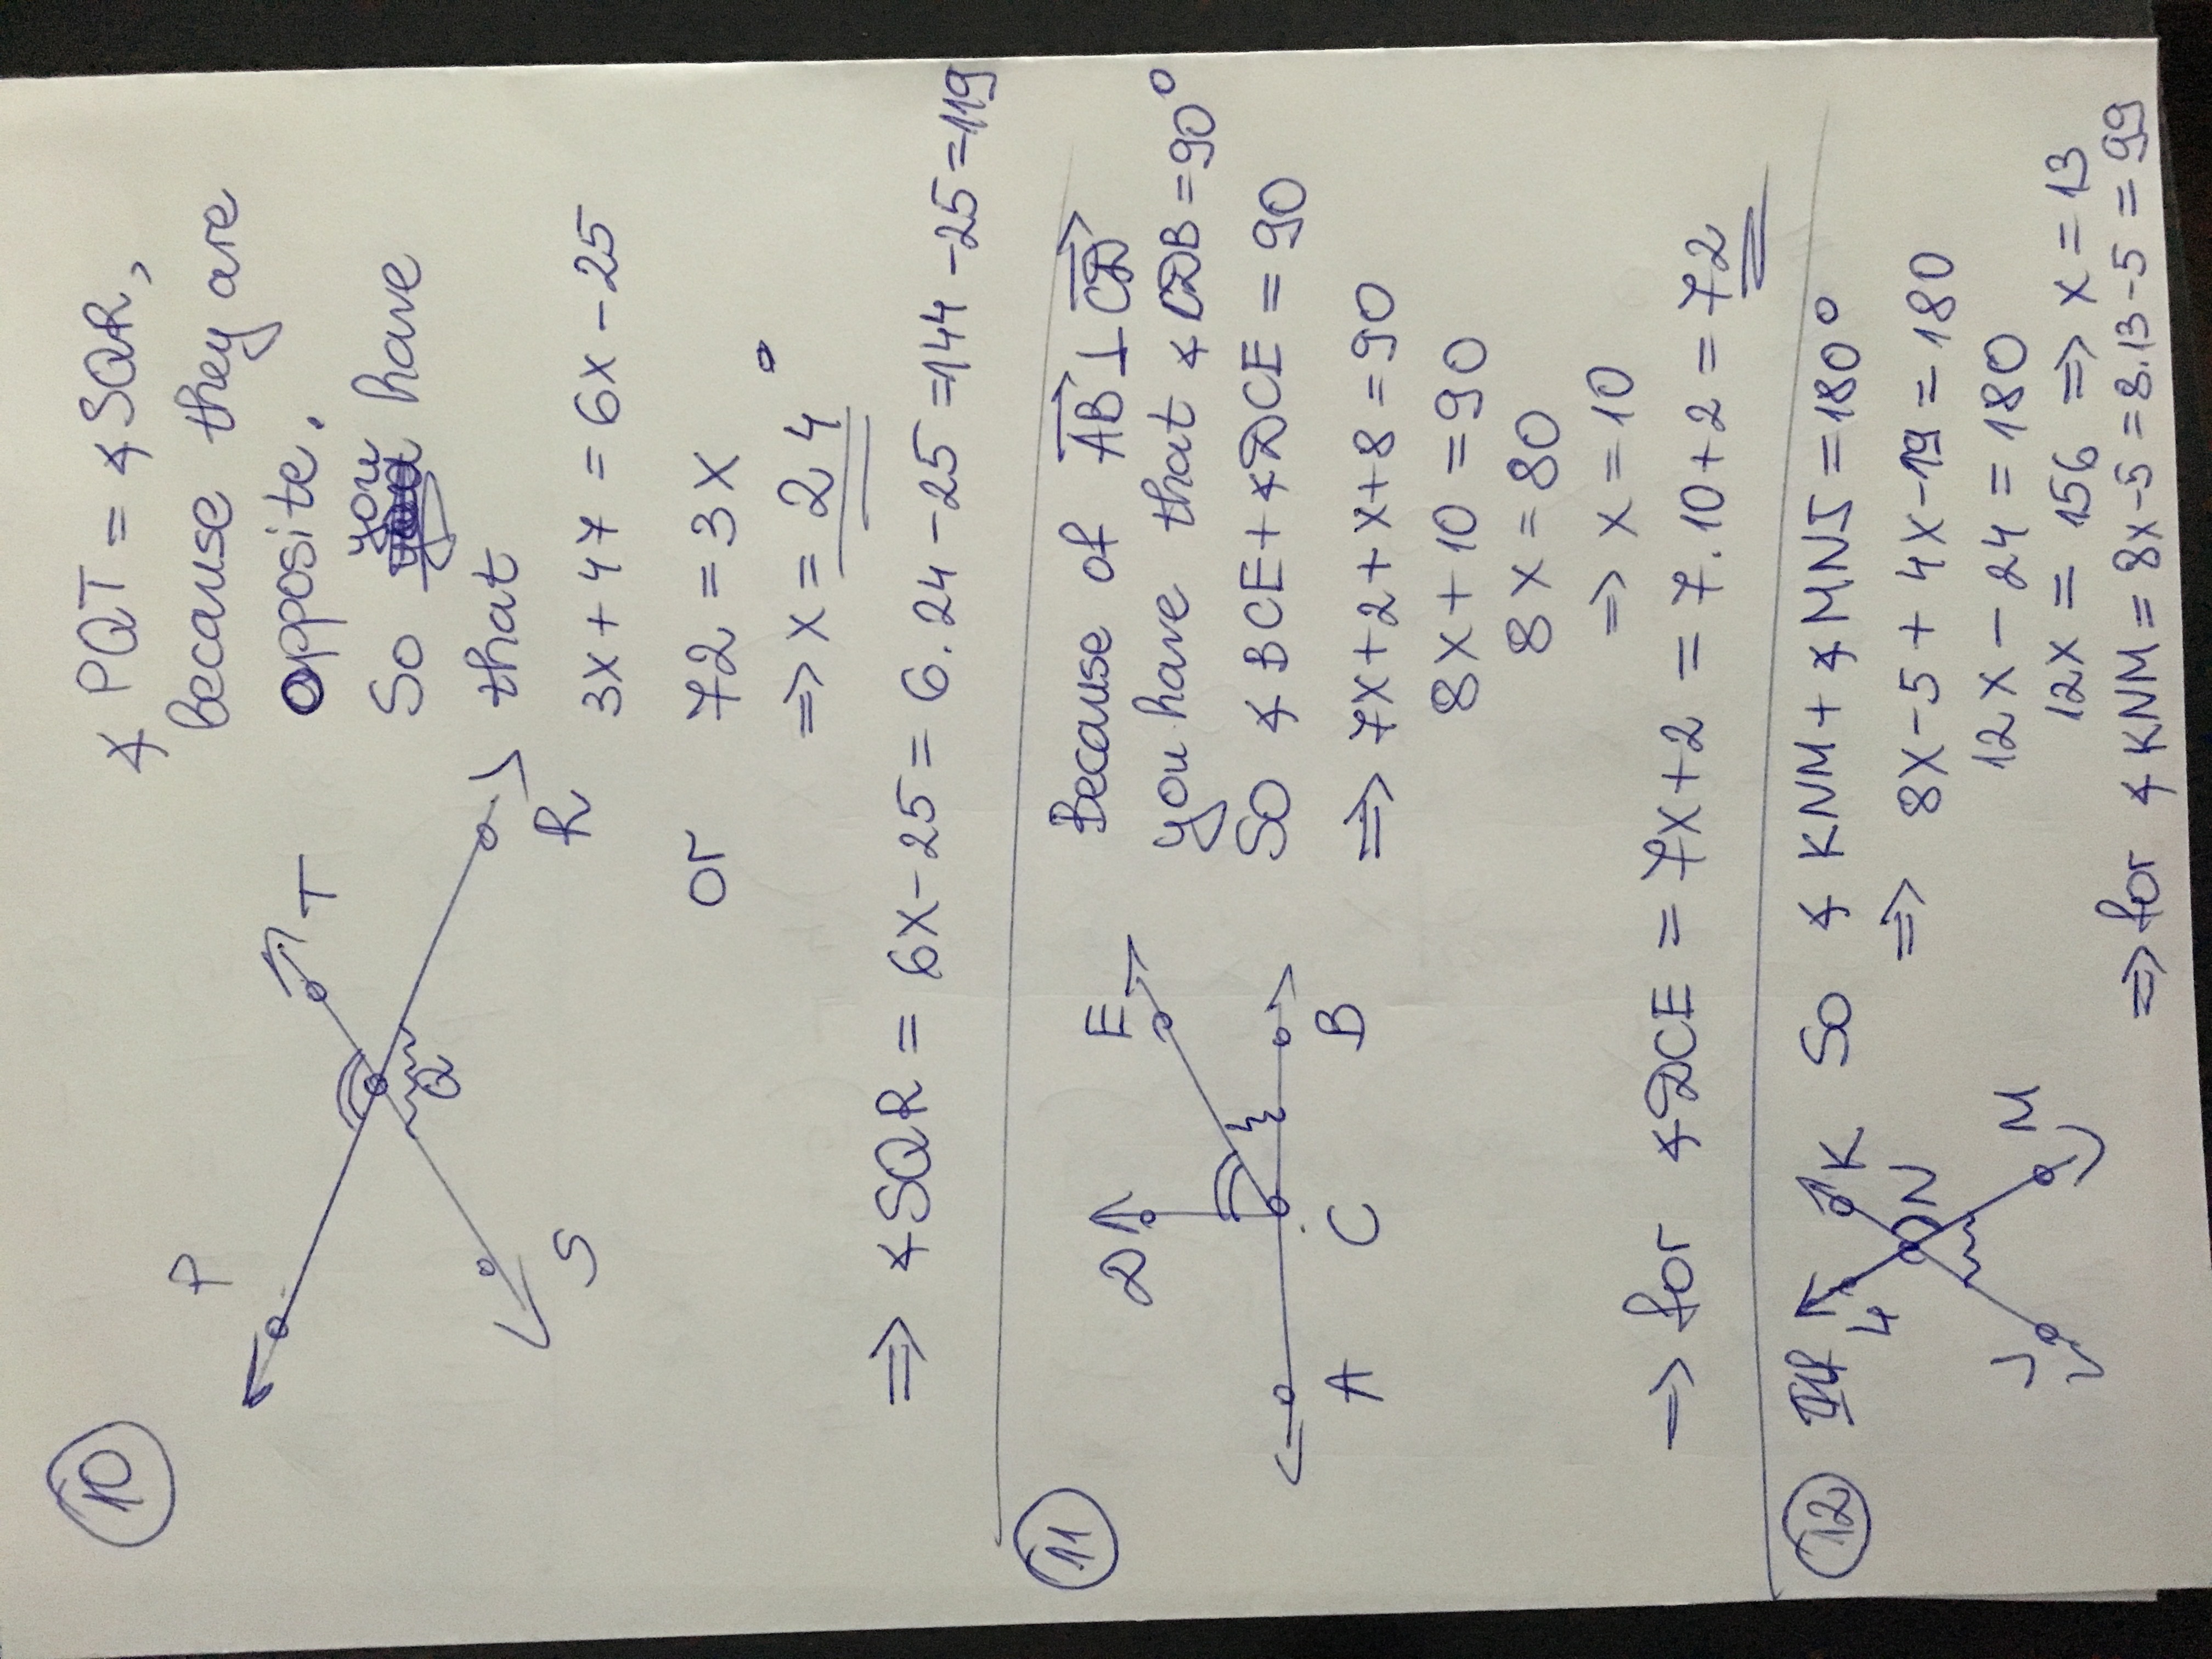 10
P
T
Q
S
R
∡ PQT = ∡ SQR,
because they are
opposite.
So you have
that
3x + 47 = 6x - 25
or 72 = 3x
=> x = 24
=> ∡SQR = 6x - 25 = 6.24 - 25 = 144 - 25 = 119
11
D
E
A
C
B
Because of AB ⊥ CD
you have that ∡ CDB = 90°
So ∡ BCE + ∡DCE = 90
=> 7x + 2 + x + 8 = 90
8x + 10 = 90
8x = 80
=> x = 10
=> for ∡DCE = 7x + 2 = 7.10 + 2 = 72
12
4
K
N
J
M
So ∡ KNM + ∡ MNJ = 180°
=> 8x - 5 + 4x - 19 = 180
12x - 24 = 180
12x = 156 => x = 13
=> for ∡ KNM = 8x - 5 = 8.13 - 5 = 99